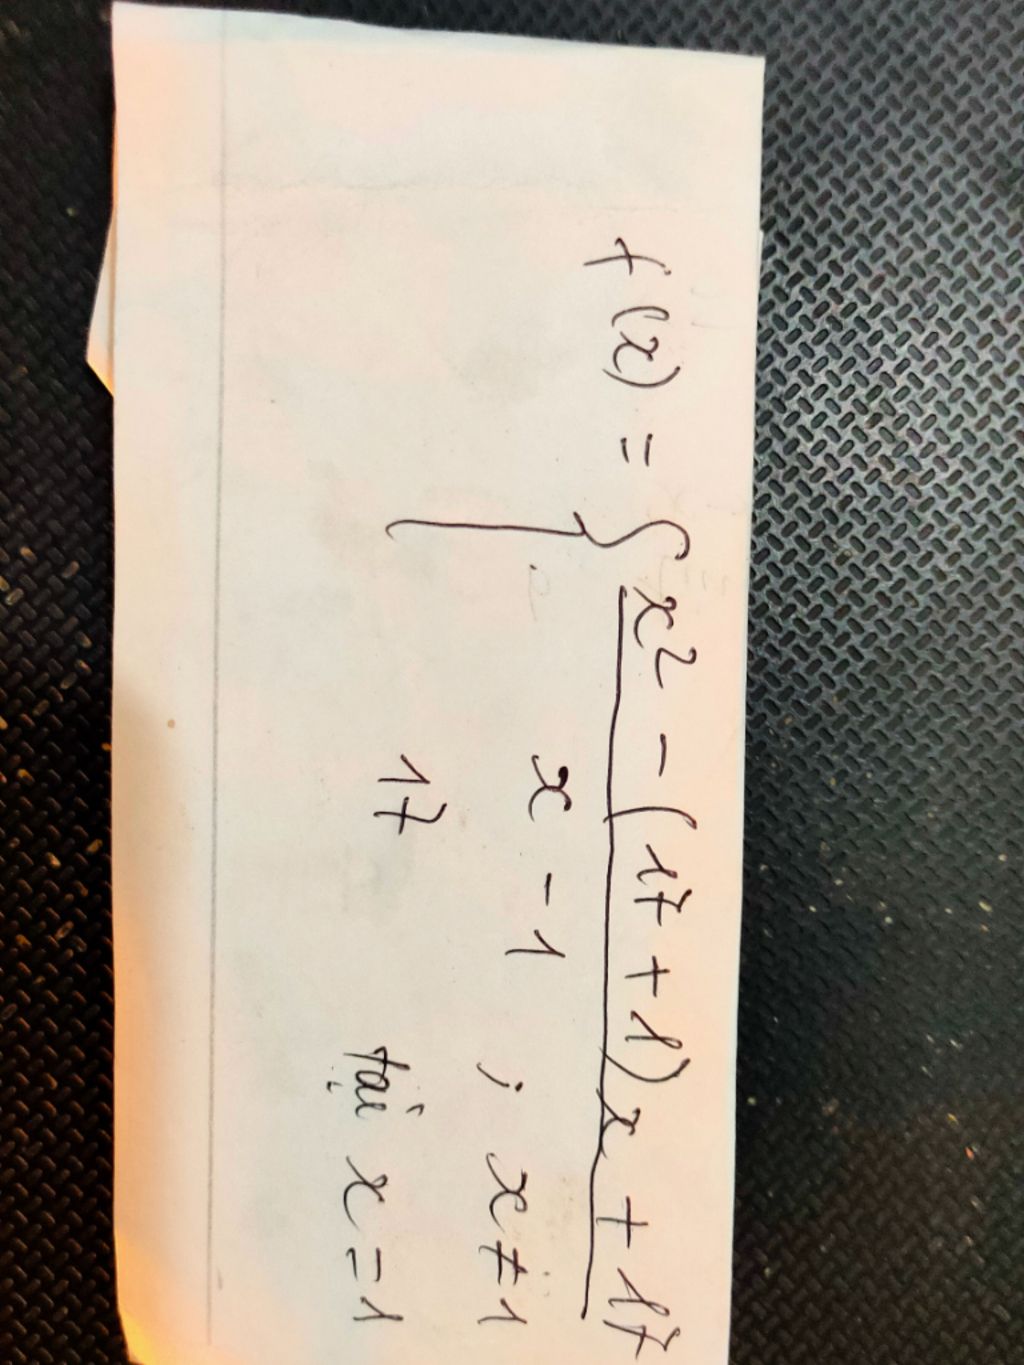 f(x) = { x² - (17 + 1)x + 17
x - 1 ; x ≠ 1
17 tại x = 1